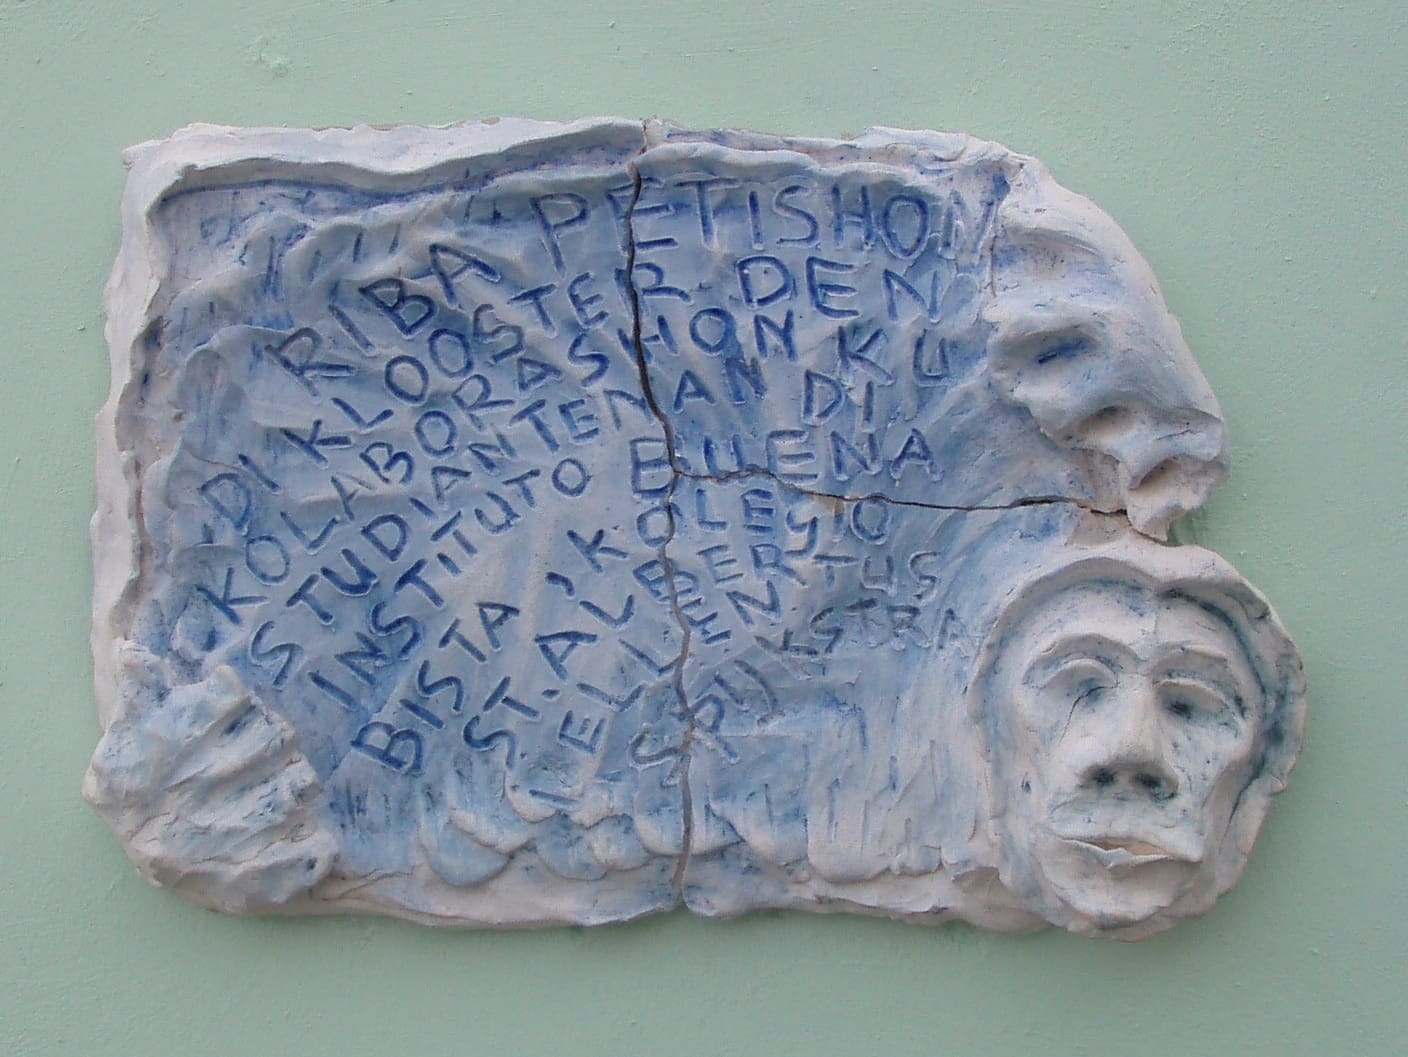 RIBA PETISHON
DI KLOOSTER DEN
KOLABORASHON KU
STUDIANTENAN DI
INSTITUTO BUENA
BISTA, KOLEGIO
ST. ALBERTUS
I ELLEN
SPIJKSTRA